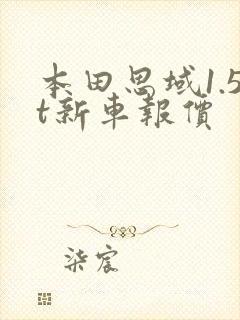 本田思域1.5
t新車報價
柒宸